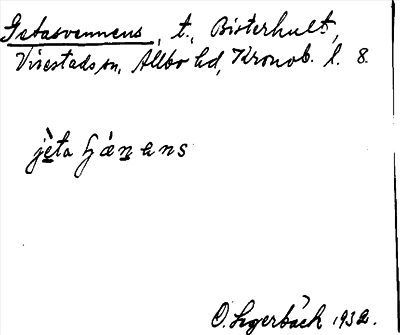 Getasvennens, t., Bisterhult,
Virestads sn, Allbo hd, Kronob. l. 8.
O. Segerbäck 1932.